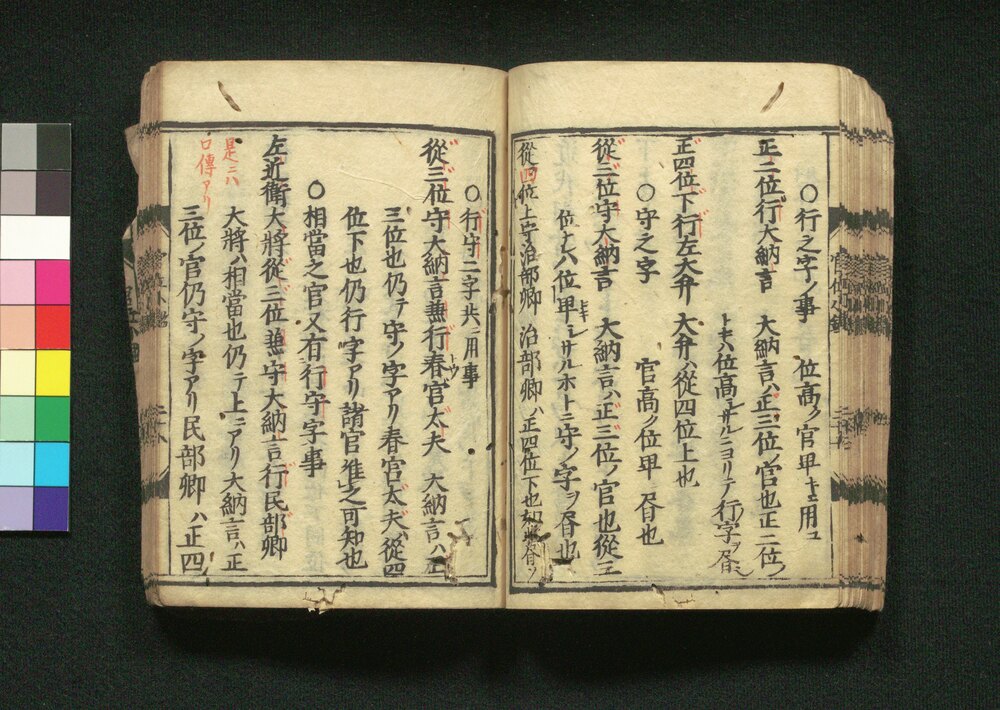 〇行之字ノ事 位高ク官卑キニ用ユ
正二位行大納言 大納言ハ正三位ノ官也正二位ノ
トキハ位高 ヨリテ行字ヲ
正四位下行左大弁 大弁ハ從四位上也
〇守之字 官高ク位卑 也
從三位守大納言 大納言ハ正三位ノ官也從三
位ナレハ位卑 ホトニ守ノ字ヲ 也
從四位上守治部卿 治部卿ハ正四位下也
〇行守二字共ニ用事
從三位守大納言兼行春宮大夫 大納言ハ正
三位也仍テ守ノ字アリ春宮大夫ハ從四
位下也仍行ノ字アリ諸官准之可知也
〇相當之官又有行守字事
左近衛大將從三位兼守大納言行民部卿
是ニハ口傳アリ
大將ハ相當也仍テ上ニアリ大納言ハ正
三位ノ官仍守ノ字アリ民部卿ハ正四